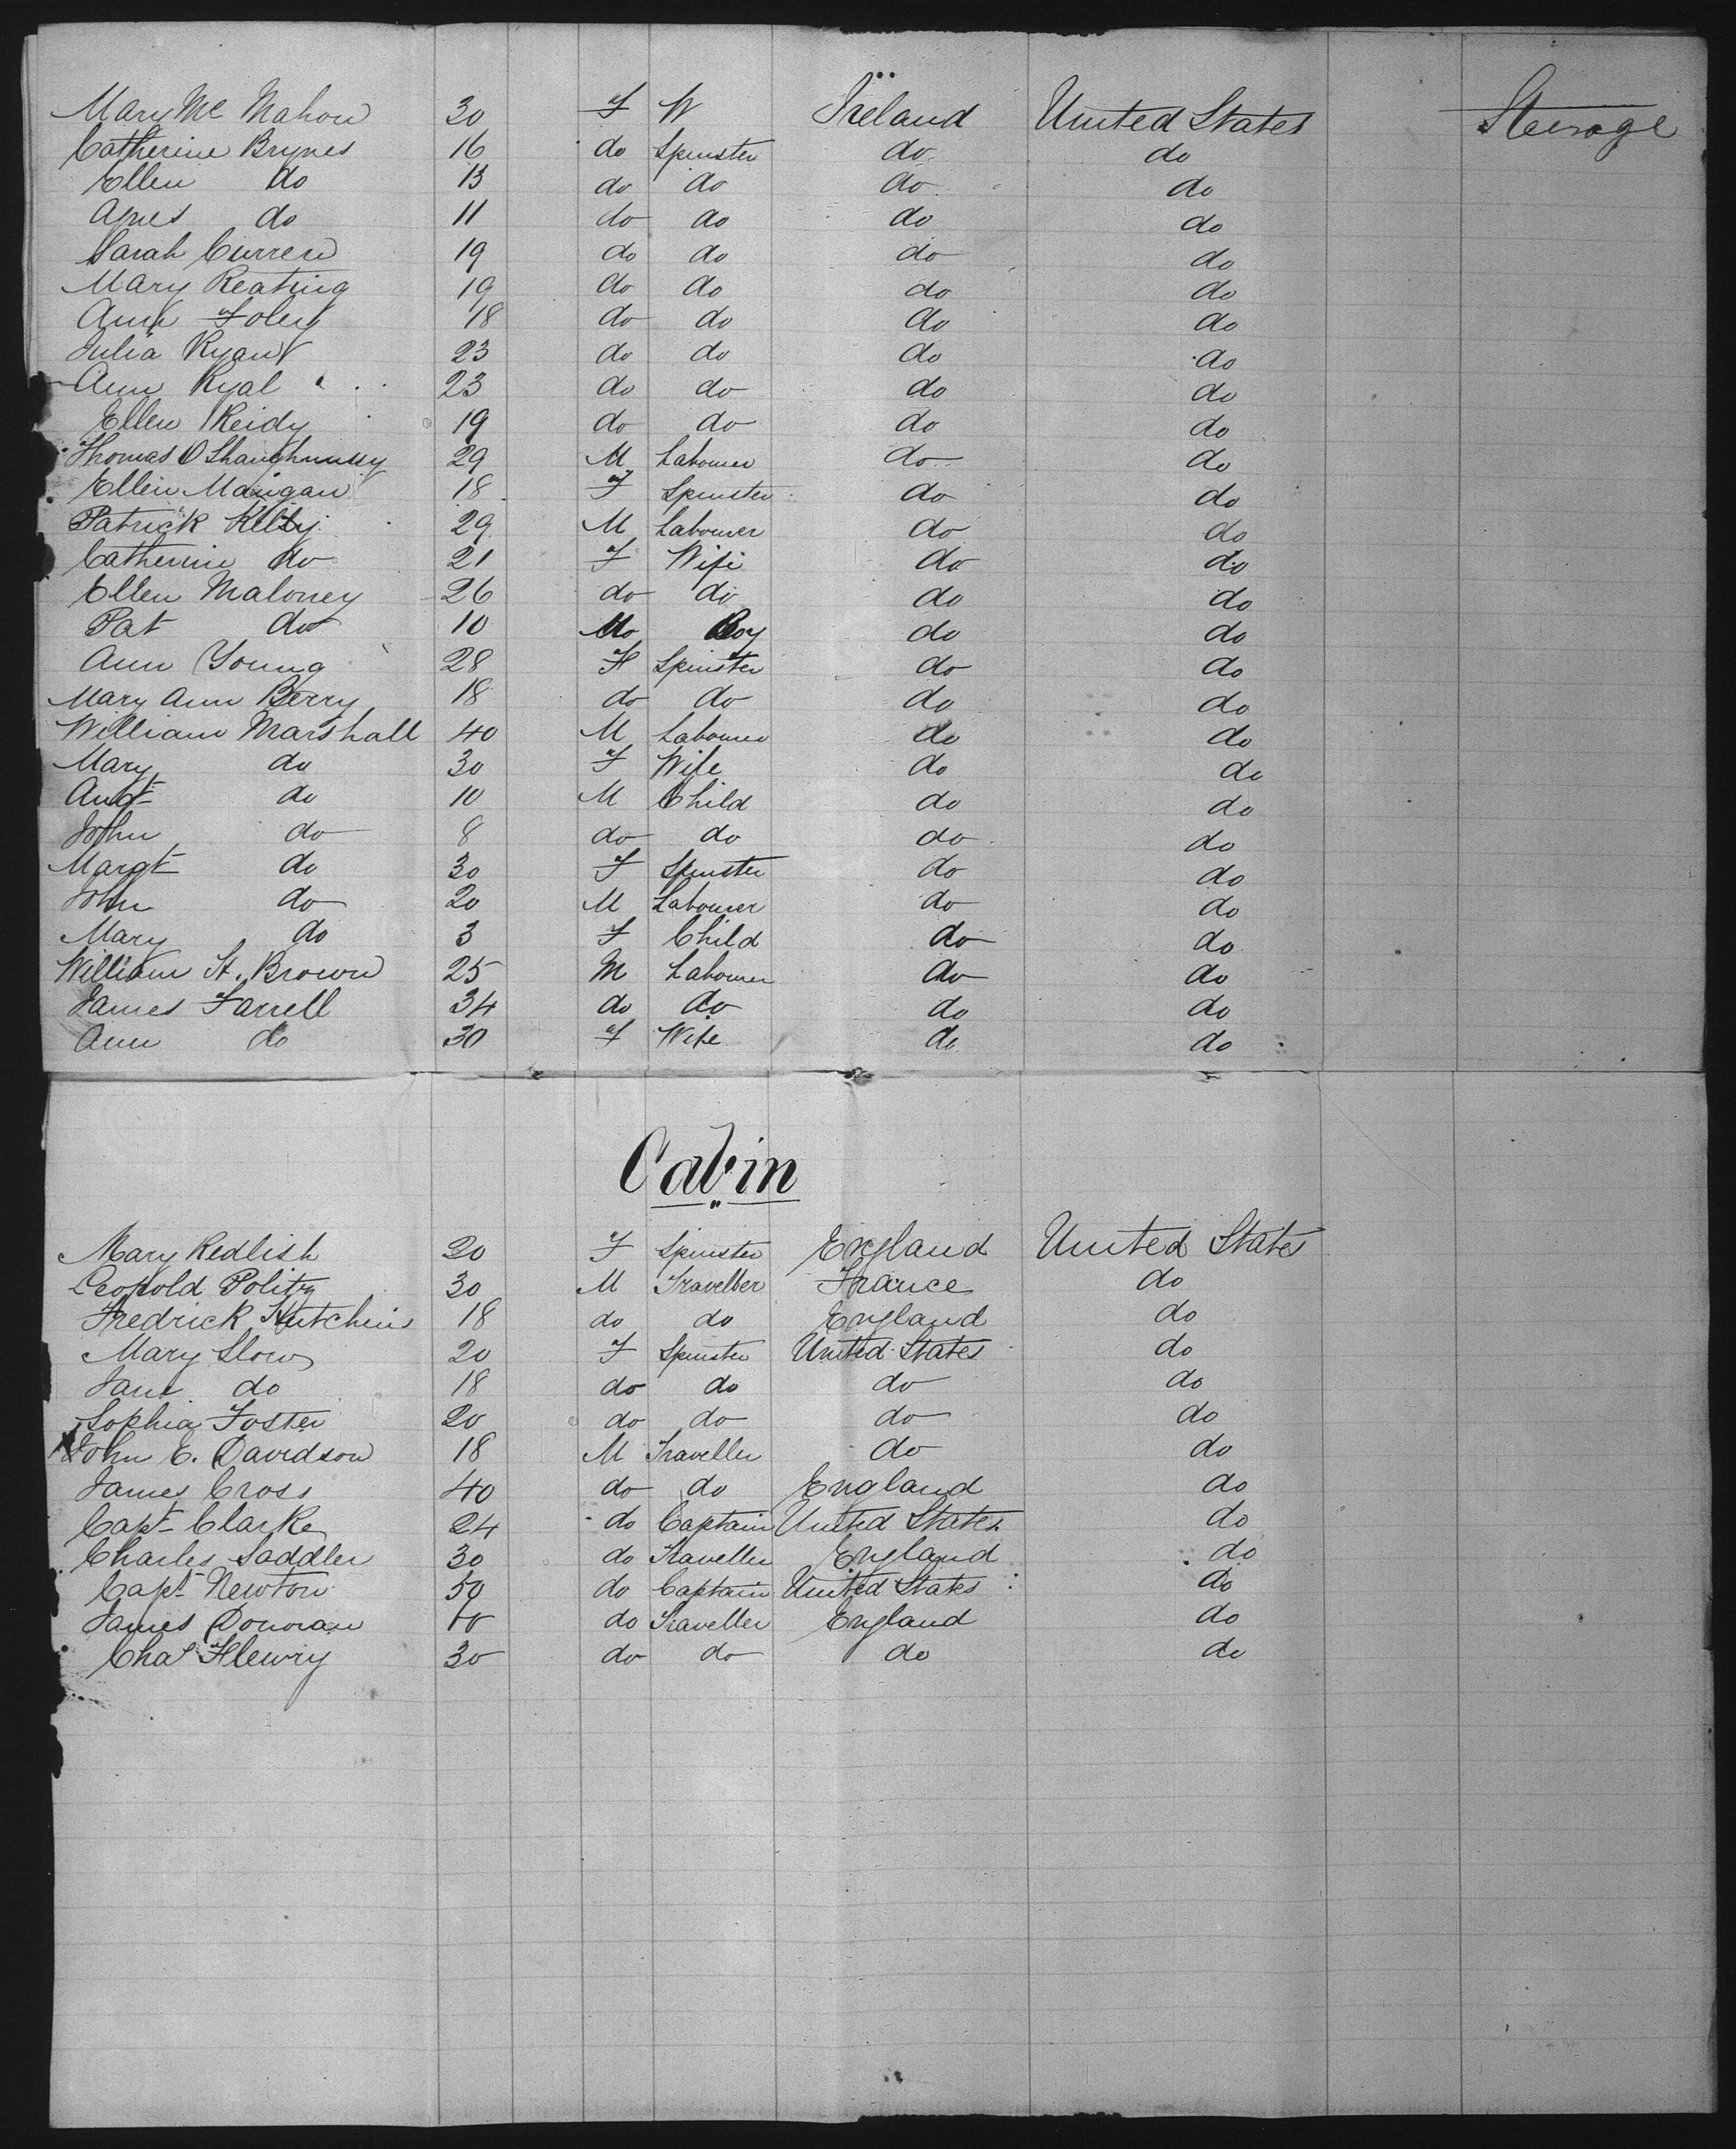 Mary Mc Mahon 30 F W Ireland United States Steerage
Catherine Brynes 16 do Spinster do do
Ellen do 13 do do do do
Agnes do 11 do do do do
Sarah Curren 19 do do do do
Mary Keating 19 do do do do
Ann Foley 18 do do do do
Julia Ryan 23 do do do do
Ann Ryal 23 do do do do
Ellen Reidy 19 do do do do
Thomas O Shaughnussy 29 M Labourer do do
Ellen Mangan 18 F Spinster do do
Patrick Kelly 29 M Labourer do do
Catherine do 21 F Wife do do
Ellen Maloney 26 do do do do
Pat do 10 M Boy do do
Ann Young 28 F Spinster do do
Mary Ann Berry 18 do do do do
William Marshall 40 M Labourer do do
Mary do 30 F Wife do do
And do 10 M Child do do
John do 8 do do do do
Margt do 30 F Spinster do do
John do 20 M Labourer do do
Mary do 3 F Child do do
William H. Brown 25 M Labourer do do
James Farrell 34 do do do do
Ann do 30 F Wife do do
Cabin
Mary Redlish 20 F Spinster England United States
Leopold Polity 30 M Traveller France do
Fredrick Hutchins 18 do do England do
Mary Slow 20 F Spinster United States do
Jane do 18 do do do do
Sophia Foster 20 do do do do
John E. Davidson 18 M Traveller do do
James Cross 40 do do England do
Capt Clarke 24 do Captain United States do
Charles Saddler 30 do Traveller England do
Capt Newton 50 do Captain United States do
James Donovan do Traveller England do
Chas Flewry 30 do do do do